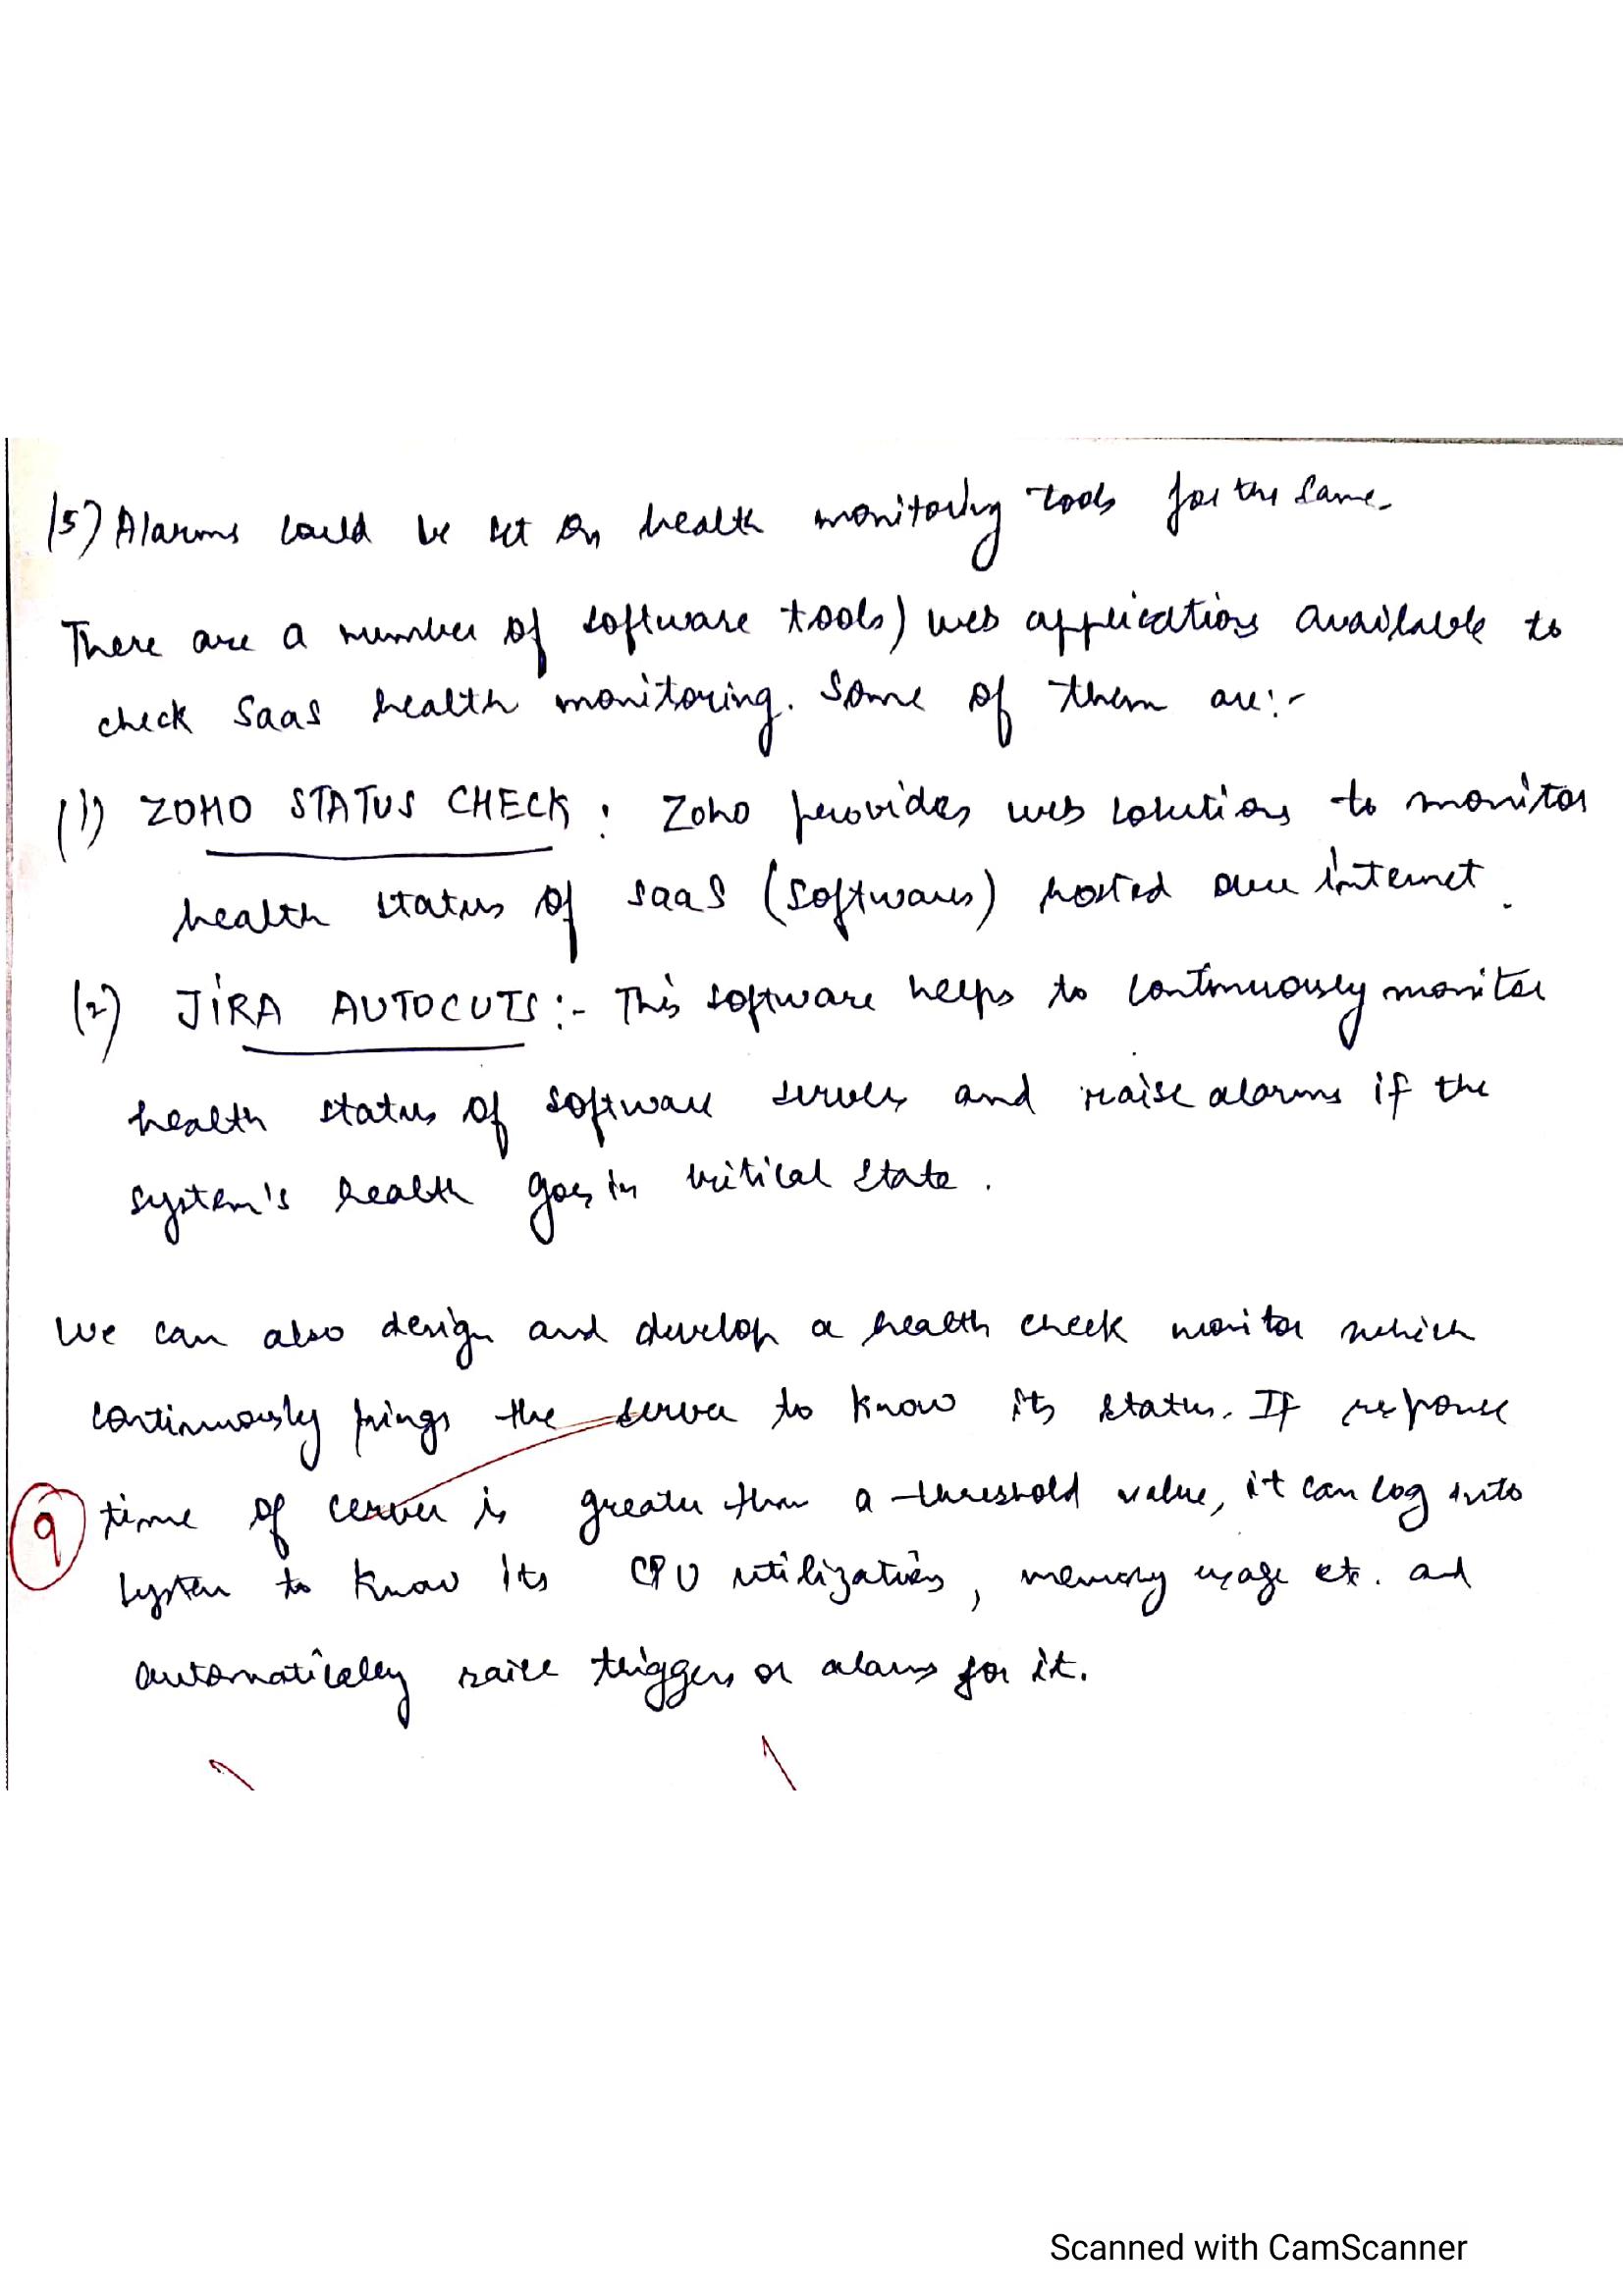 (5) Alarms could be set on health monitoring tools for the same.
There are a number of software tools) web applications available to
check SaaS health monitoring. Some of them are:-
(1) ZOHO STATUS CHECK : Zoho provides web solutions to monitor
health status of SaaS (softwares) hosted over internet.
(2) JIRA AUTOCUTS:- This software helps to continuously monitor
health status of software servers and raise alarms if the
system's health goes in critical state.
We can also design and develop a health check monitor which
continuously pings the server to know its status. If response
9 time of cerver is greater than a threshold value, it can log into
system to know its CPU utilizations, memory usage etc. and
automatically raise triggers or alarms for it.
Scanned with CamScanner